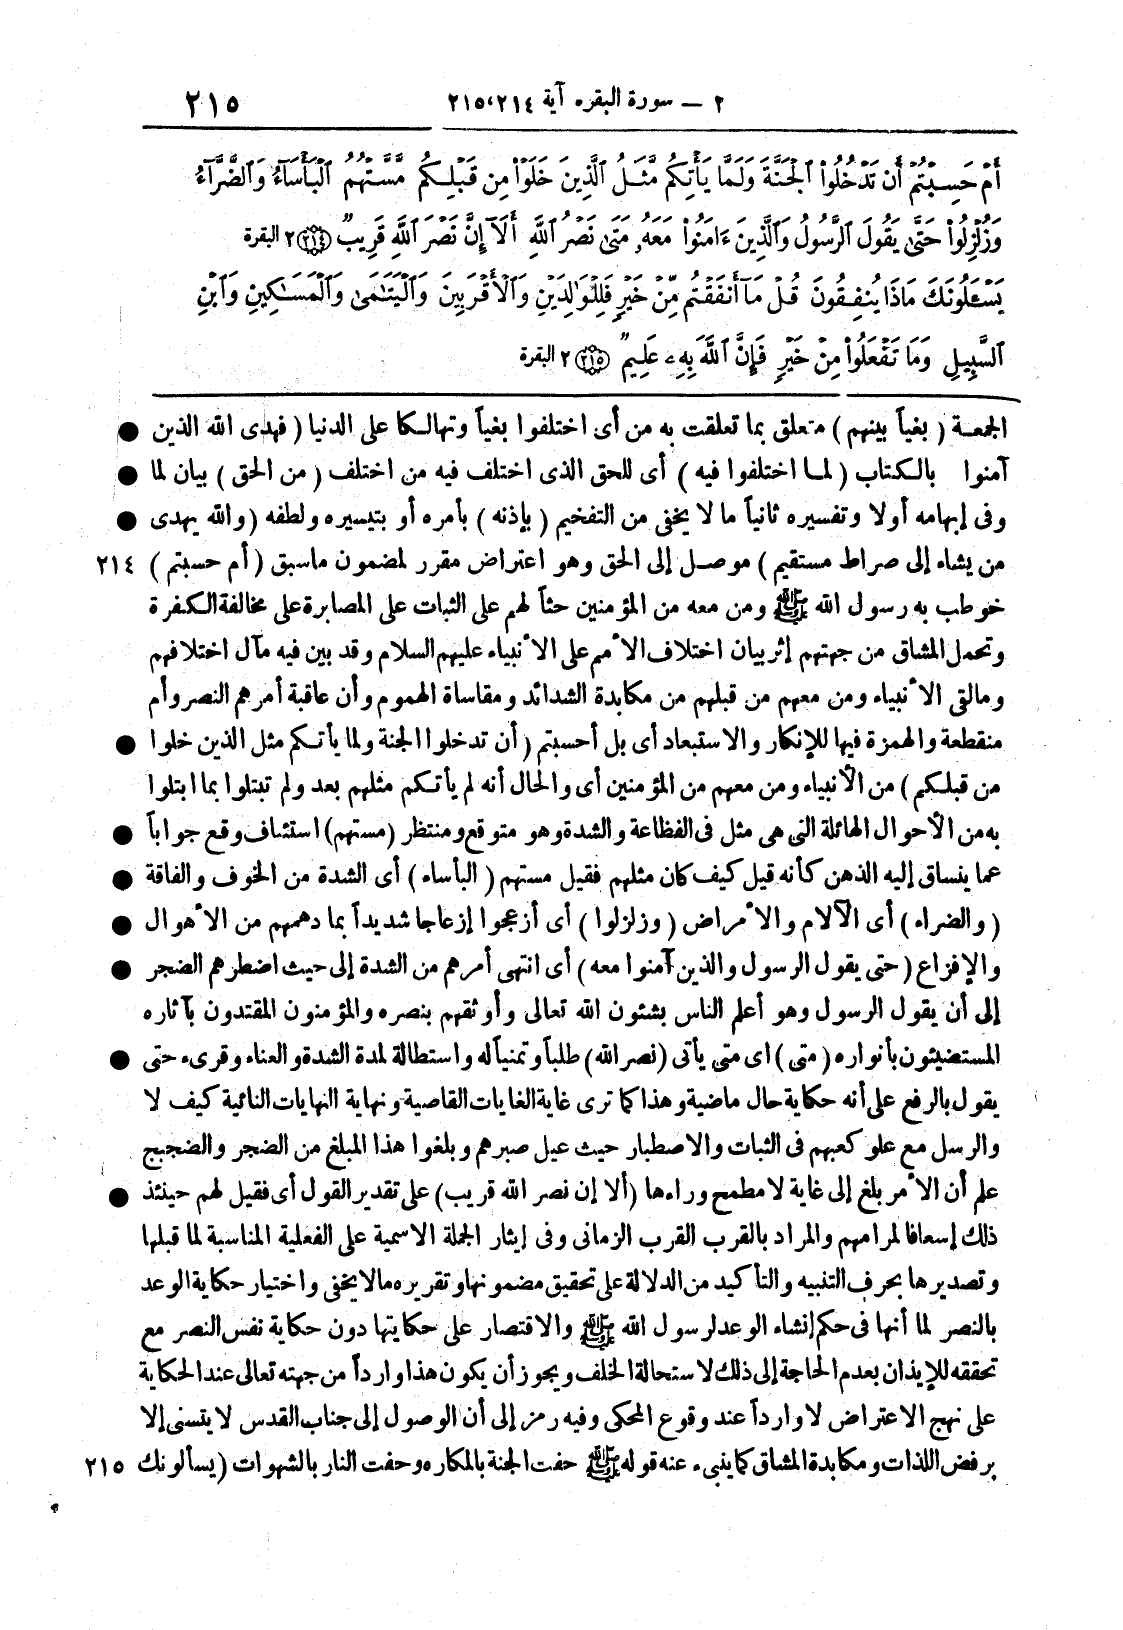 ٢ – سورة البقره آية ٢١٥،٢١٤ ٢١٥
أَمْ حَسِبْتُمْ أَن تَدْخُلُوا۟ ٱلْجَنَّةَ وَلَمَّا يَأْتِكُم مَّثَلُ ٱلَّذِينَ خَلَوْا۟ مِن قَبْلِكُم مَّسَّتْهُمُ ٱلْبَأْسَآءُ وَٱلضَّرَّآءُ
وَزُلْزِلُوا۟ حَتَّىٰ يَقُولَ ٱلرَّسُولُ وَٱلَّذِينَ ءَامَنُوا۟ مَعَهُۥ مَتَىٰ نَصْرُ ٱللَّهِ أَلَآ إِنَّ نَصْرَ ٱللَّهِ قَرِيبٌ ٢١٤ ٢ البقرة
يَسْـَٔلُونَكَ مَاذَا يُنفِقُونَ قُلْ مَآ أَنفَقْتُم مِّنْ خَيْرٍ فَلِلْوَٰلِدَيْنِ وَٱلْأَقْرَبِينَ وَٱلْيَتَـٰمَىٰ وَٱلْمَسَـٰكِينِ وَٱبْنِ
ٱلسَّبِيلِ وَمَا تَفْعَلُوا۟ مِنْ خَيْرٍ فَإِنَّ ٱللَّهَ بِهِۦ عَلِيمٌ ٢١٥ ٢ البقرة
الجمعة (بغياً بينهم) متعلق بما تعلقت به من أى اختلفوا بغياً وتهالكا على الدنيا (فهدى الله الذين ●
آمنوا بالكتاب (لما اختلفوا فيه) أى للحق الذى اختلف فيه من اختلف (من الحق) بيان لما ●
وفى إبهامه أولا وتفسيره ثانياً ما لا يخفى من التفخيم (بإذنه) بأمره أو بتيسيره ولطفه (والله يهدى ●
من يشاء إلى صراط مستقيم) موصل إلى الحق وهو اعتراض مقرر لمضمون ماسبق (أم حسبتم) ٢١٤
خوطب به رسول الله ﷺ ومن معه من المؤمنين حثاً لهم على الثبات على المصابرة على مخالفة الكفرة
وتحمل المشاق من جهتهم إثر بيان اختلاف الأمم على الأنبياء عليهم السلام وقد بين فيه مآل اختلافهم
ومالقى الأنبياء ومن معهم من قبلهم من مكابدة الشدائد ومقاساة الهموم وأن عاقبة أمرهم النصر وأم
منقطعة والهمزة فيها للإنكار والاستبعاد أى بل أحسبتم (أن تدخلوا الجنة ولما يأتكم مثل الذين خلوا ●
من قبلكم) من الأنبياء ومن معهم من المؤمنين أى والحال أنه لم يأتكم مثلهم بعد ولم تبتلوا بما ابتلوا
به من الأحوال الهائلة التى هى مثل فى الفظاعة والشدة وهو متوقع ومنتظر (مستهم) استئناف وقع جواباً ●
عما ينساق إليه الذهن كأنه قيل كيف كان مثلهم فقيل مستهم (البأساء) أى الشدة من الخوف والفاقة ●
(والضراء) أى الآلام والأمراض (وزلزلوا) أى أزعجوا إزعاجا شديداً بما دهمهم من الأهوال ●
والإفزاع (حتى يقول الرسول والذين آمنوا معه) أى انتهى أمرهم من الشدة إلى حيث اضطرهم الضجر ●
إلى أن يقول الرسول وهو أعلم الناس بشئون الله تعالى وأوثقهم بنصره والمؤمنون المقتدون بآثاره
المستضيئون بأنواره (متى) اى متى يأتى (نصر الله) طلباً وتمنياً له واستطالة لمدة الشدة والعناء وقرىء حتى ●
يقول بالرفع على أنه حكاية حال ماضية وهذا كما ترى غاية الغايات القاصية ونهاية النهايات النائية كيف لا
والرسل مع علو كعبهم فى الثبات والاصطبار حيث عيل صبرهم وبلغوا هذا المبلغ من الضجر والضجيج
علم أن الأمر بلغ إلى غاية لا مطمح وراءها (ألا إن نصر الله قريب) على تقدير القول أى فقيل لهم حينئذ ●
ذلك إسعافا لمرامهم والمراد بالقرب القرب الزمانى وفى إيثار الجملة الاسمية على الفعلية المناسبة لما قبلها
وتصديرها بحرف التنبيه والتأكيد من الدلالة على تحقيق مضمونها وتقريره مالا يخفى واختيار حكاية الوعد
بالنصر لما أنها فى حكم إنشاء الوعد لرسول الله ﷺ والاقتصار على حكايتها دون حكاية نفس النصر مع
تحققه للإيذان بعدم الحاجة إلى ذلك لاستحالة الخلف ويجوز أن يكون هذا وارداً من جهته تعالى عند الحكاية
على نهج الاعتراض لا وارداً عند وقوع المحكى وفيه رمز إلى أن الوصول إلى جناب القدس لا يتسنى إلا
برفض اللذات ومكابدة المشاق كما ينبىء عنه قوله ﷺ حفت الجنة بالمكاره وحفت النار بالشهوات (يسألونك ٢١٥